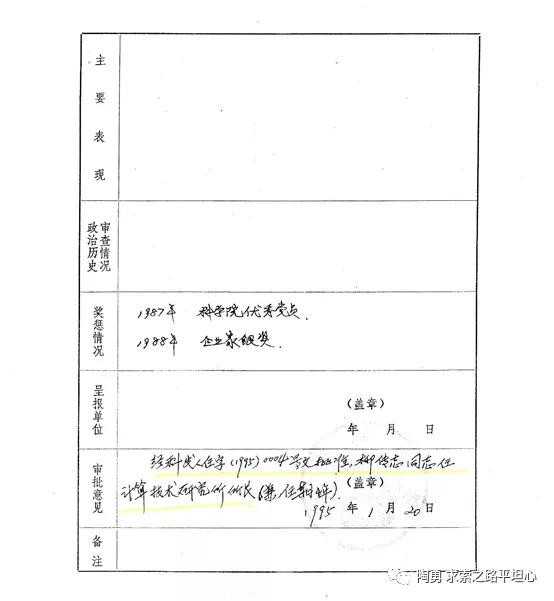 主要表现
政治历史
审查情况
奖惩情况
1987年 科学院优秀党员.
1988年 企业家银奖.
呈报单位
(盖章)
年 月 日
审批意见
经科发人任字(1995)0004号文批准,柳传志同志任
计算技术研究所所长
(盖章)
1995 年 1 月 20 日
备注
陶勇 求索之路平坦心